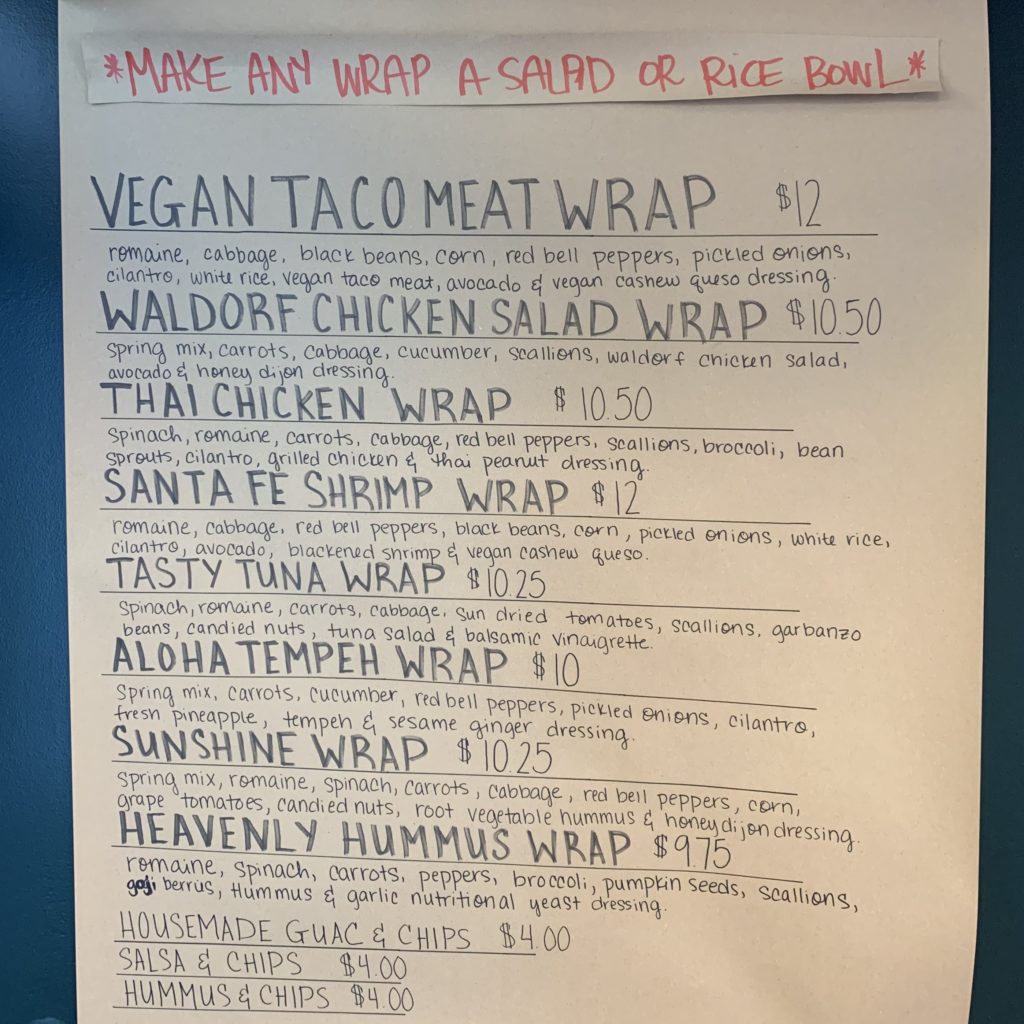 *MAKE ANY WRAP A SALAD OR RICE BOWL*
VEGAN TACO MEAT WRAP $12
romaine, cabbage, black beans, corn, red bell peppers, pickled onions,
cilantro, white rice, vegan taco meat, avocado & vegan cashew queso dressing.
WALDORF CHICKEN SALAD WRAP $10.50
spring mix, carrots, cabbage, cucumber, scallions, waldorf chicken salad,
avocado & honey dijon dressing.
THAI CHICKEN WRAP $10.50
spinach, romaine, carrots, cabbage, red bell peppers, scallions, broccoli, bean
sprouts, cilantro, grilled chicken & thai peanut dressing.
SANTA FE SHRIMP WRAP $12
romaine, cabbage, red bell peppers, black beans, corn, pickled onions, white rice,
cilantro, avocado, blackened shrimp & vegan cashew queso.
TASTY TUNA WRAP $10.25
spinach, romaine, carrots, cabbage, sun dried tomatoes, scallions, garbanzo
beans, candied nuts, tuna salad & balsamic vinaigrette.
ALOHA TEMPEH WRAP $10
spring mix, carrots, cucumber, red bell peppers, pickled onions, cilantro,
fresh pineapple, tempeh & sesame ginger dressing.
SUNSHINE WRAP $10.25
spring mix, romaine, spinach, carrots, cabbage, red bell peppers, corn,
grape tomatoes, candied nuts, root vegetable hummus & honey dijon dressing.
HEAVENLY HUMMUS WRAP $9.75
romaine, spinach, carrots, peppers, broccoli, pumpkin seeds, scallions,
goji berrus, Hummus & garlic nutritional yeast dressing.
HOUSEMADE GUAC & CHIPS $4.00
SALSA & CHIPS $4.00
HUMMUS & CHIPS $4.00